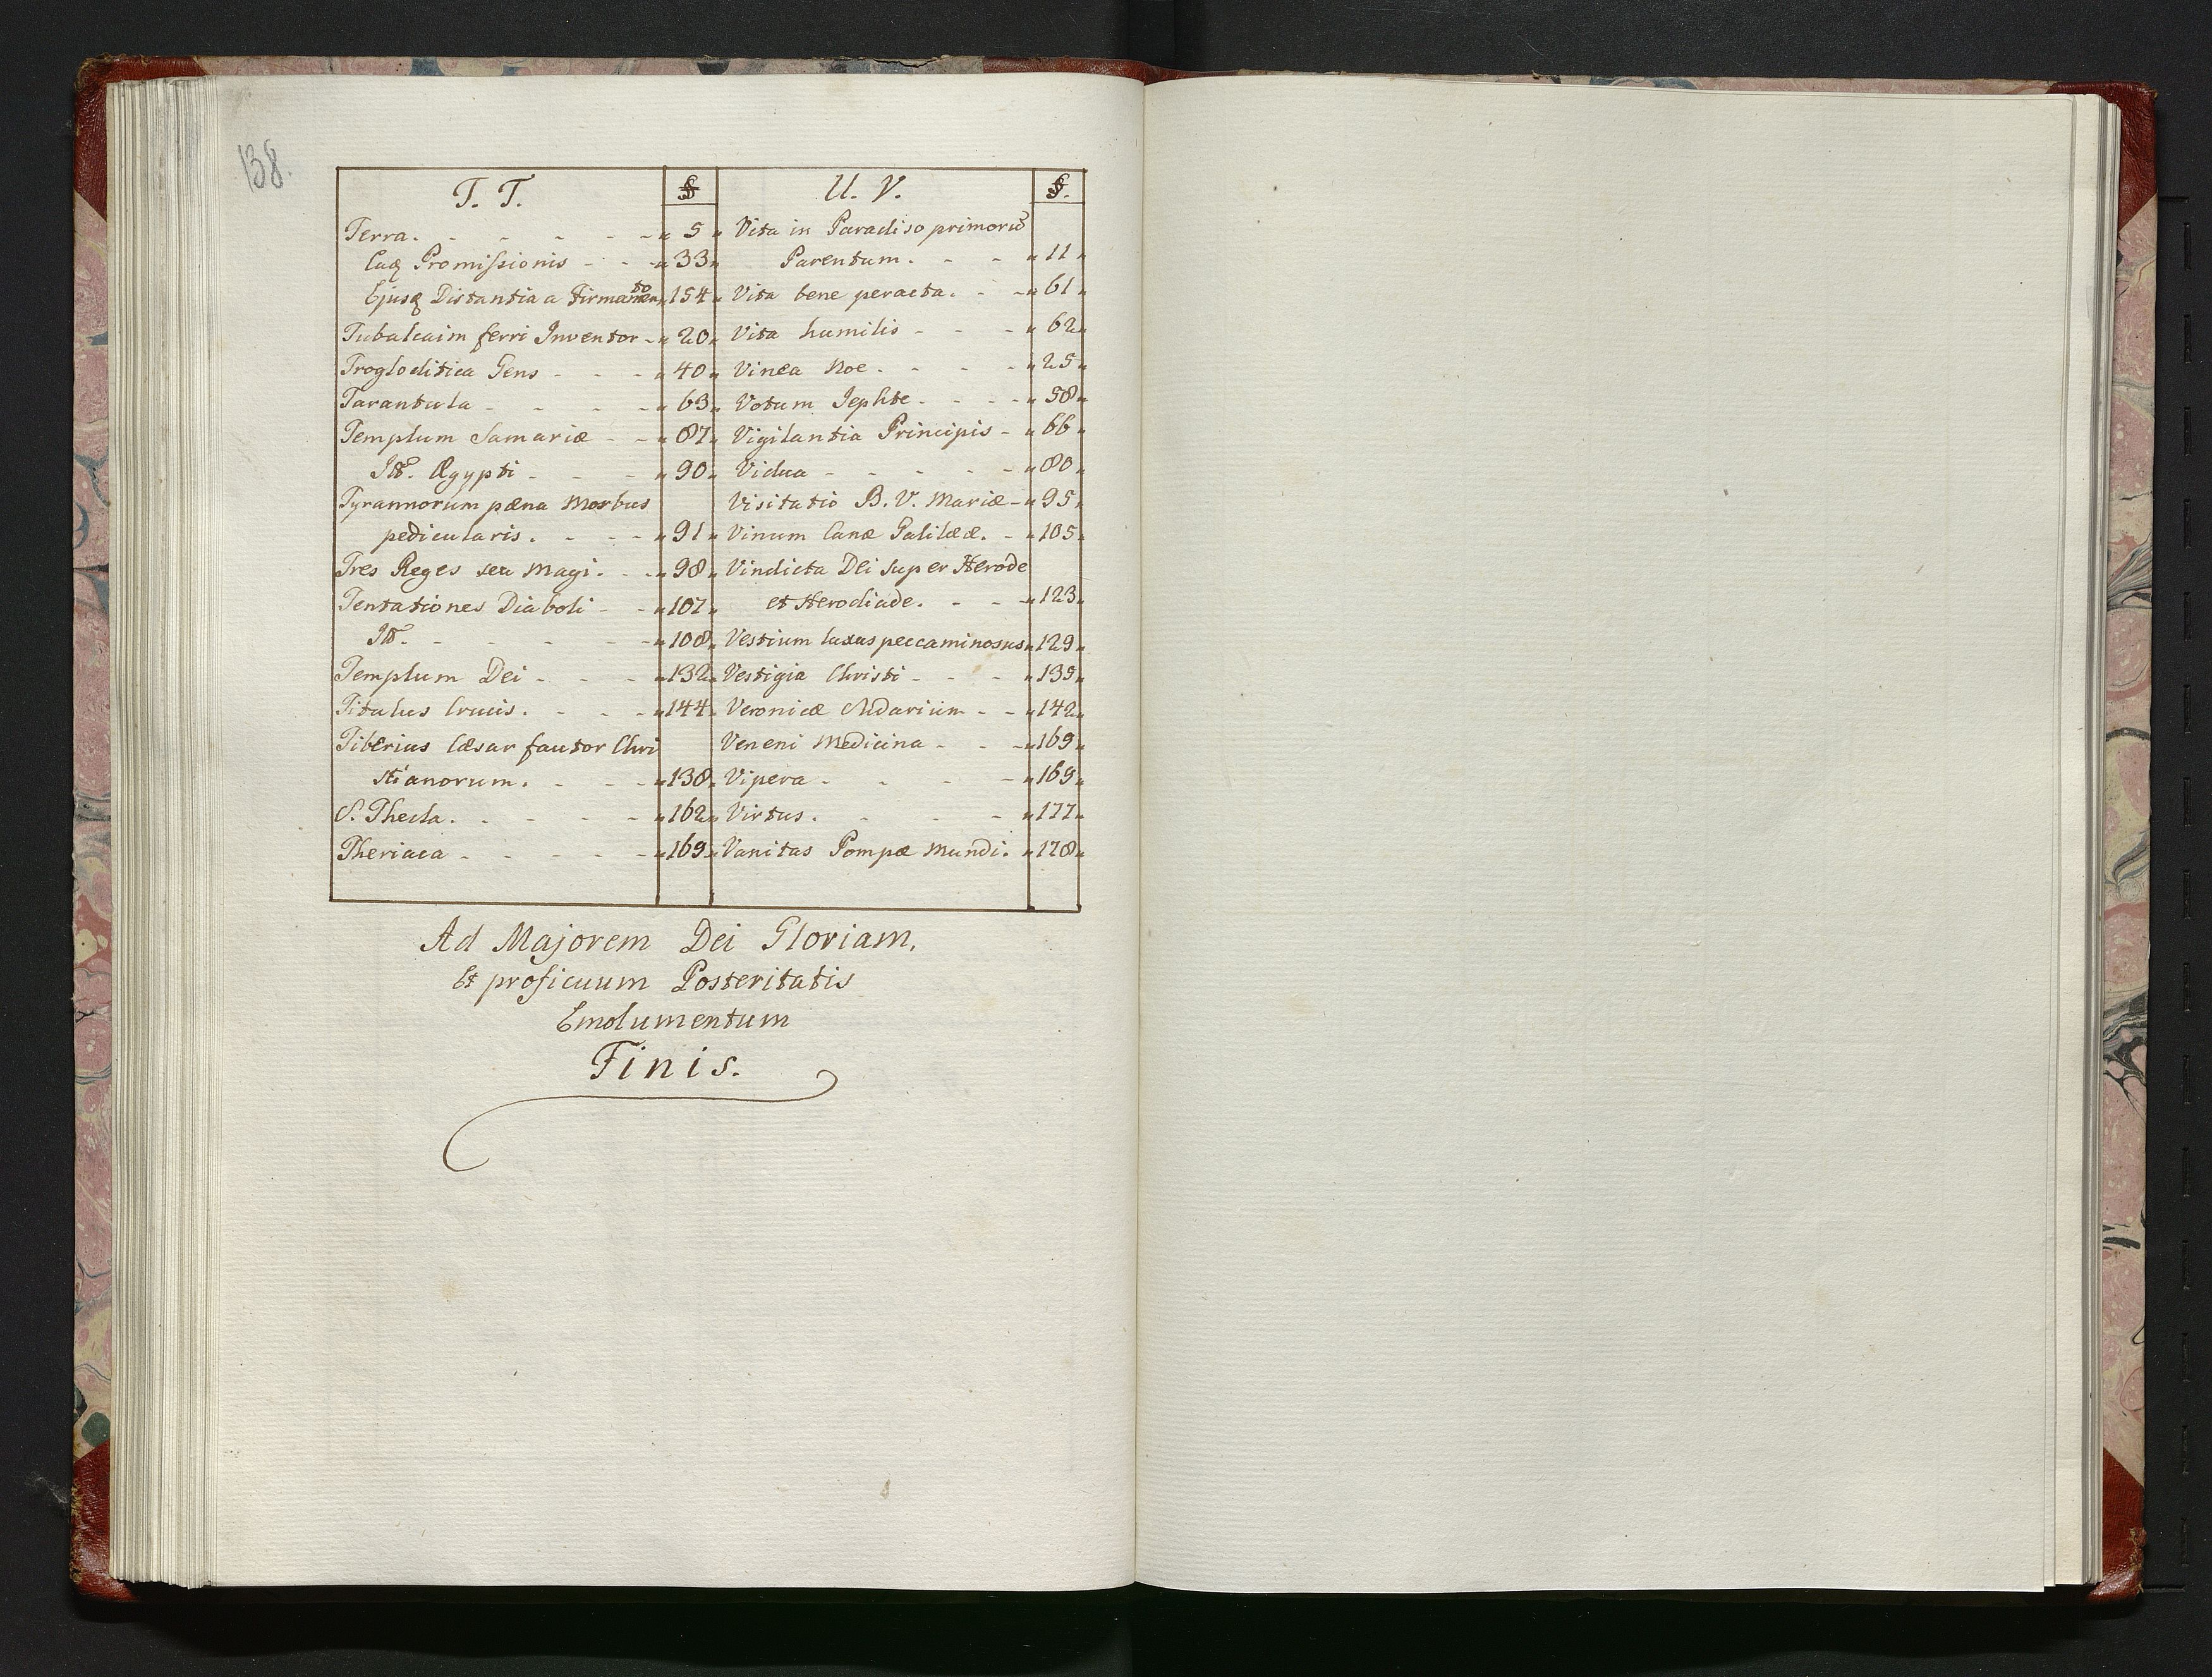 138.
T. T. §
Terra. - - - - - „ 5 „
Ejusq Promissionis - - - „ 33 „
Ejusq Distantia a Firmamento „ 154 „
Tubalcaim ferri Inventor - „ 20 „
Trogloditica Gens - - - „ 40 „
Tarantula - - - - „ 63 „
Templum Samariæ - - „ 87 „
Itē. Ægypti - - - „ 90 „
Tyrannorum pæna Morbus
pedicularis. - - - „ 91 „
Tres Reges seu Magi. - - „ 98 „
Tentationes Diaboli - - „ 107 „
Itē. - - - - - „ 108 „
Templum Dei - - - „ 132 „
Titulus Crucis. - - - „ 144 „
Tiberius Cæsar fautor Chri
stianorum. - - - „ 138 „
S. Thecla. - - - - - „ 162 „
Theriaca - - - - - „ 169 „
U. V. §.
Vita in Paradiso primorū
Parentum. - - „ 11 „
Vita bene peracta. - - „ 61 „
Vita humilis - - - „ 62 „
Vinea Noe. - - - - „ 25 „
Votum Jephte. - - - „ 58 „
Vigilantia Principis - „ 66 „
Vidua - - - - - „ 80 „
Visitatio B. V. Mariæ - „ 95 „
Vinum Canæ Galilææ. - „ 105 „
Vindicta Dei super Herode
et Herodiade. - - „ 123 „
Vestium luxus peccaminosus „ 129 „
Vestigia Christi - - - „ 139 „
Veronicæ Sudarium - - „ 142 „
Veneni Medicina - - - „ 169 „
Vipera - - - - „ 169 „
Virtus. - - - „ 177 „
Vanitas Pompæ Mundi. „ 178 „
Ad Majorem Dei Gloriam,
Et proficuum Posteritatis
Emolumentum
Finis.